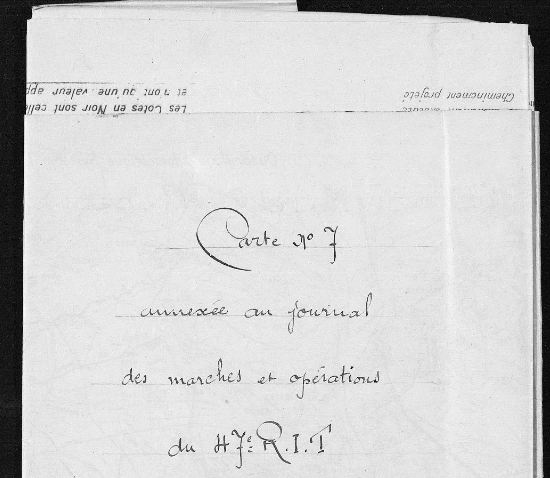 et n'ont qu'une valeur app
Les Cotes en Noir sont celle
Cheminement projeté
Carte N° 7
annexée au journal
des marches et opérations
du 47e R.I.T